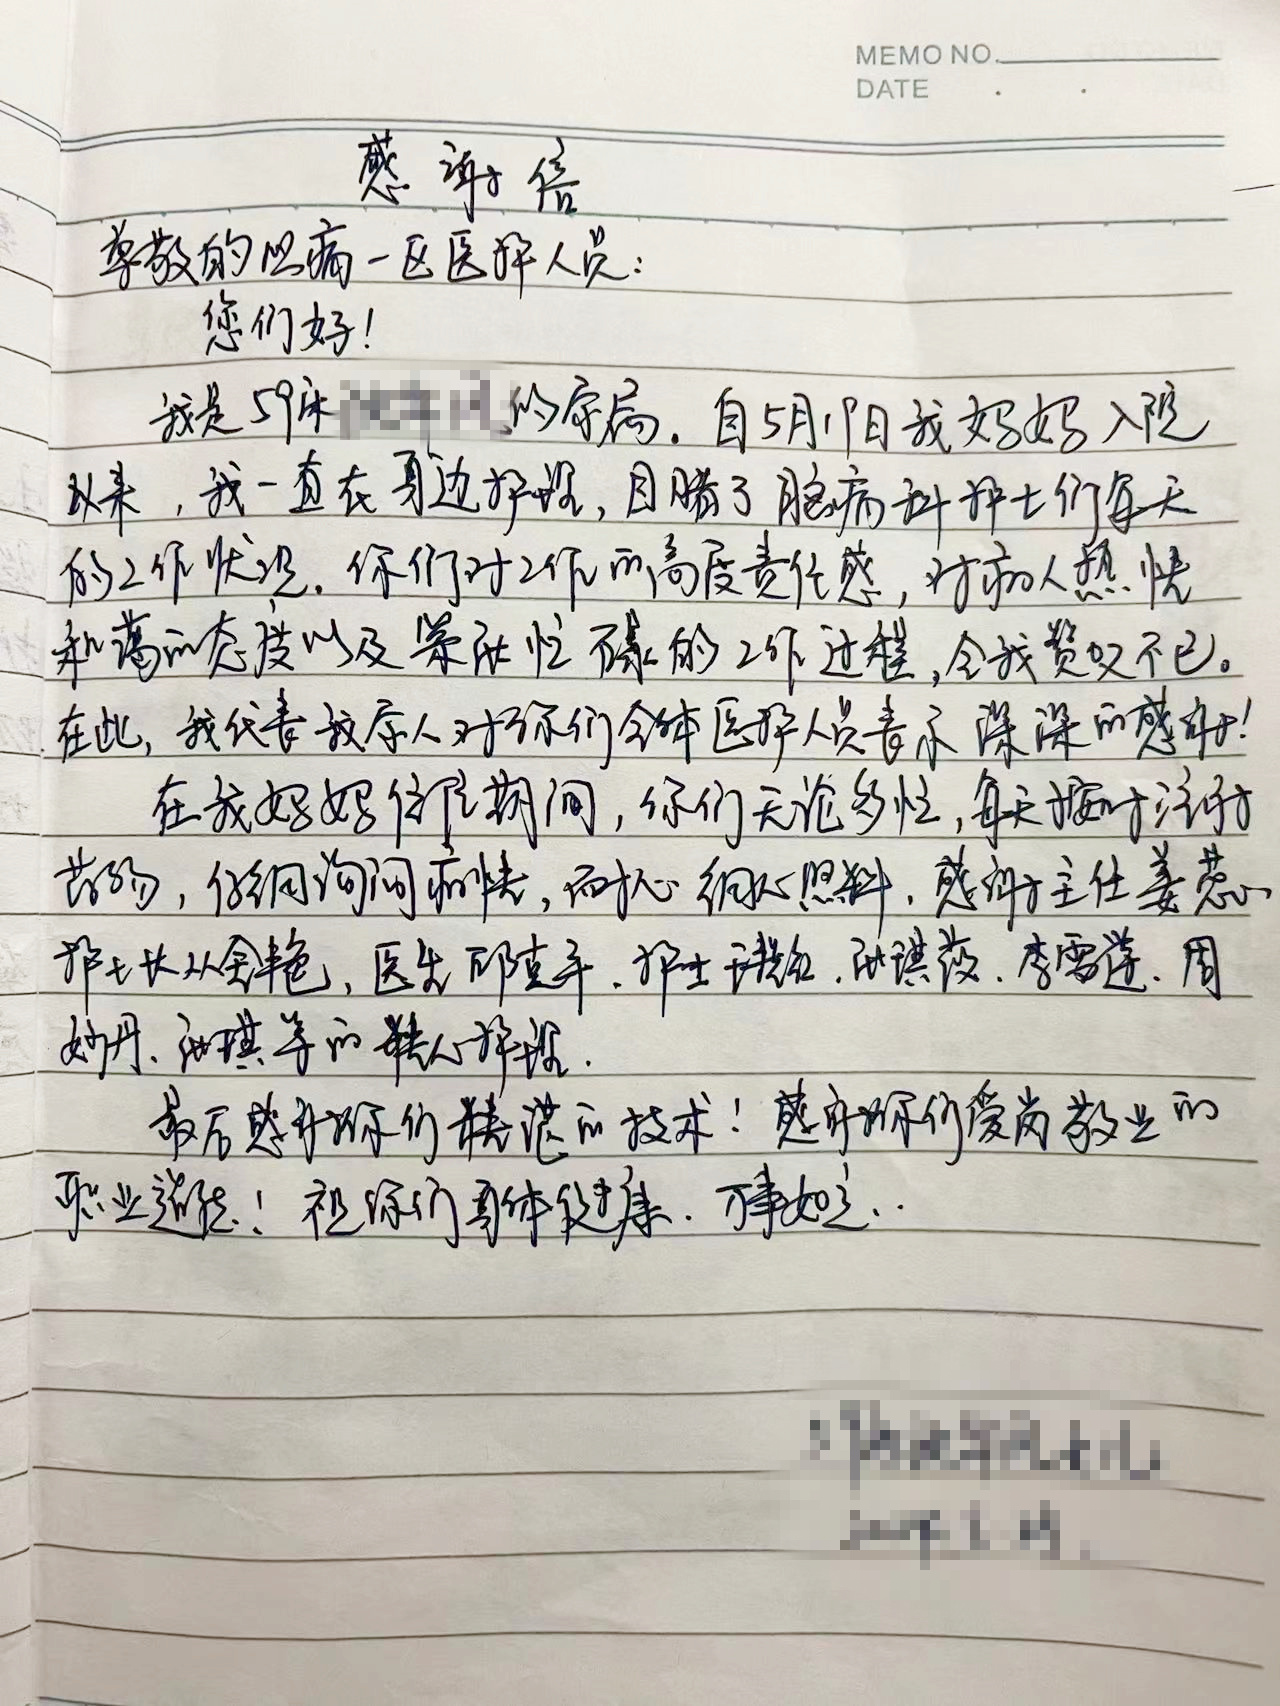 MEMO NO.
DATE . .
感谢信
尊敬的脑病一区医护人员：
您们好！
我是59床 的家属。自5月19日我妈妈入院
以来，我一直在身边护理，目睹了脑病科护士们每天
的工作状况。你们对工作的高度责任感，对病人热情
和蔼的态度以及紧张忙碌的工作过程，令我赞叹不已。
在此，我代表我家人对你们全体医护人员表示深深的感谢！
在我妈妈住院期间，你们无论多忙，每天按时注射
药物，仔细询问病情，耐心细心照料，感谢主任姜蕊
护士长从金艳、医生邱克军、护士 红、张琪筱、李雪莲、周
妙丹、张琪等的精心护理.
最后感谢你们精湛的技术！感谢你们爱岗敬业的
职业道德！祝你们身体健康、万事如意..